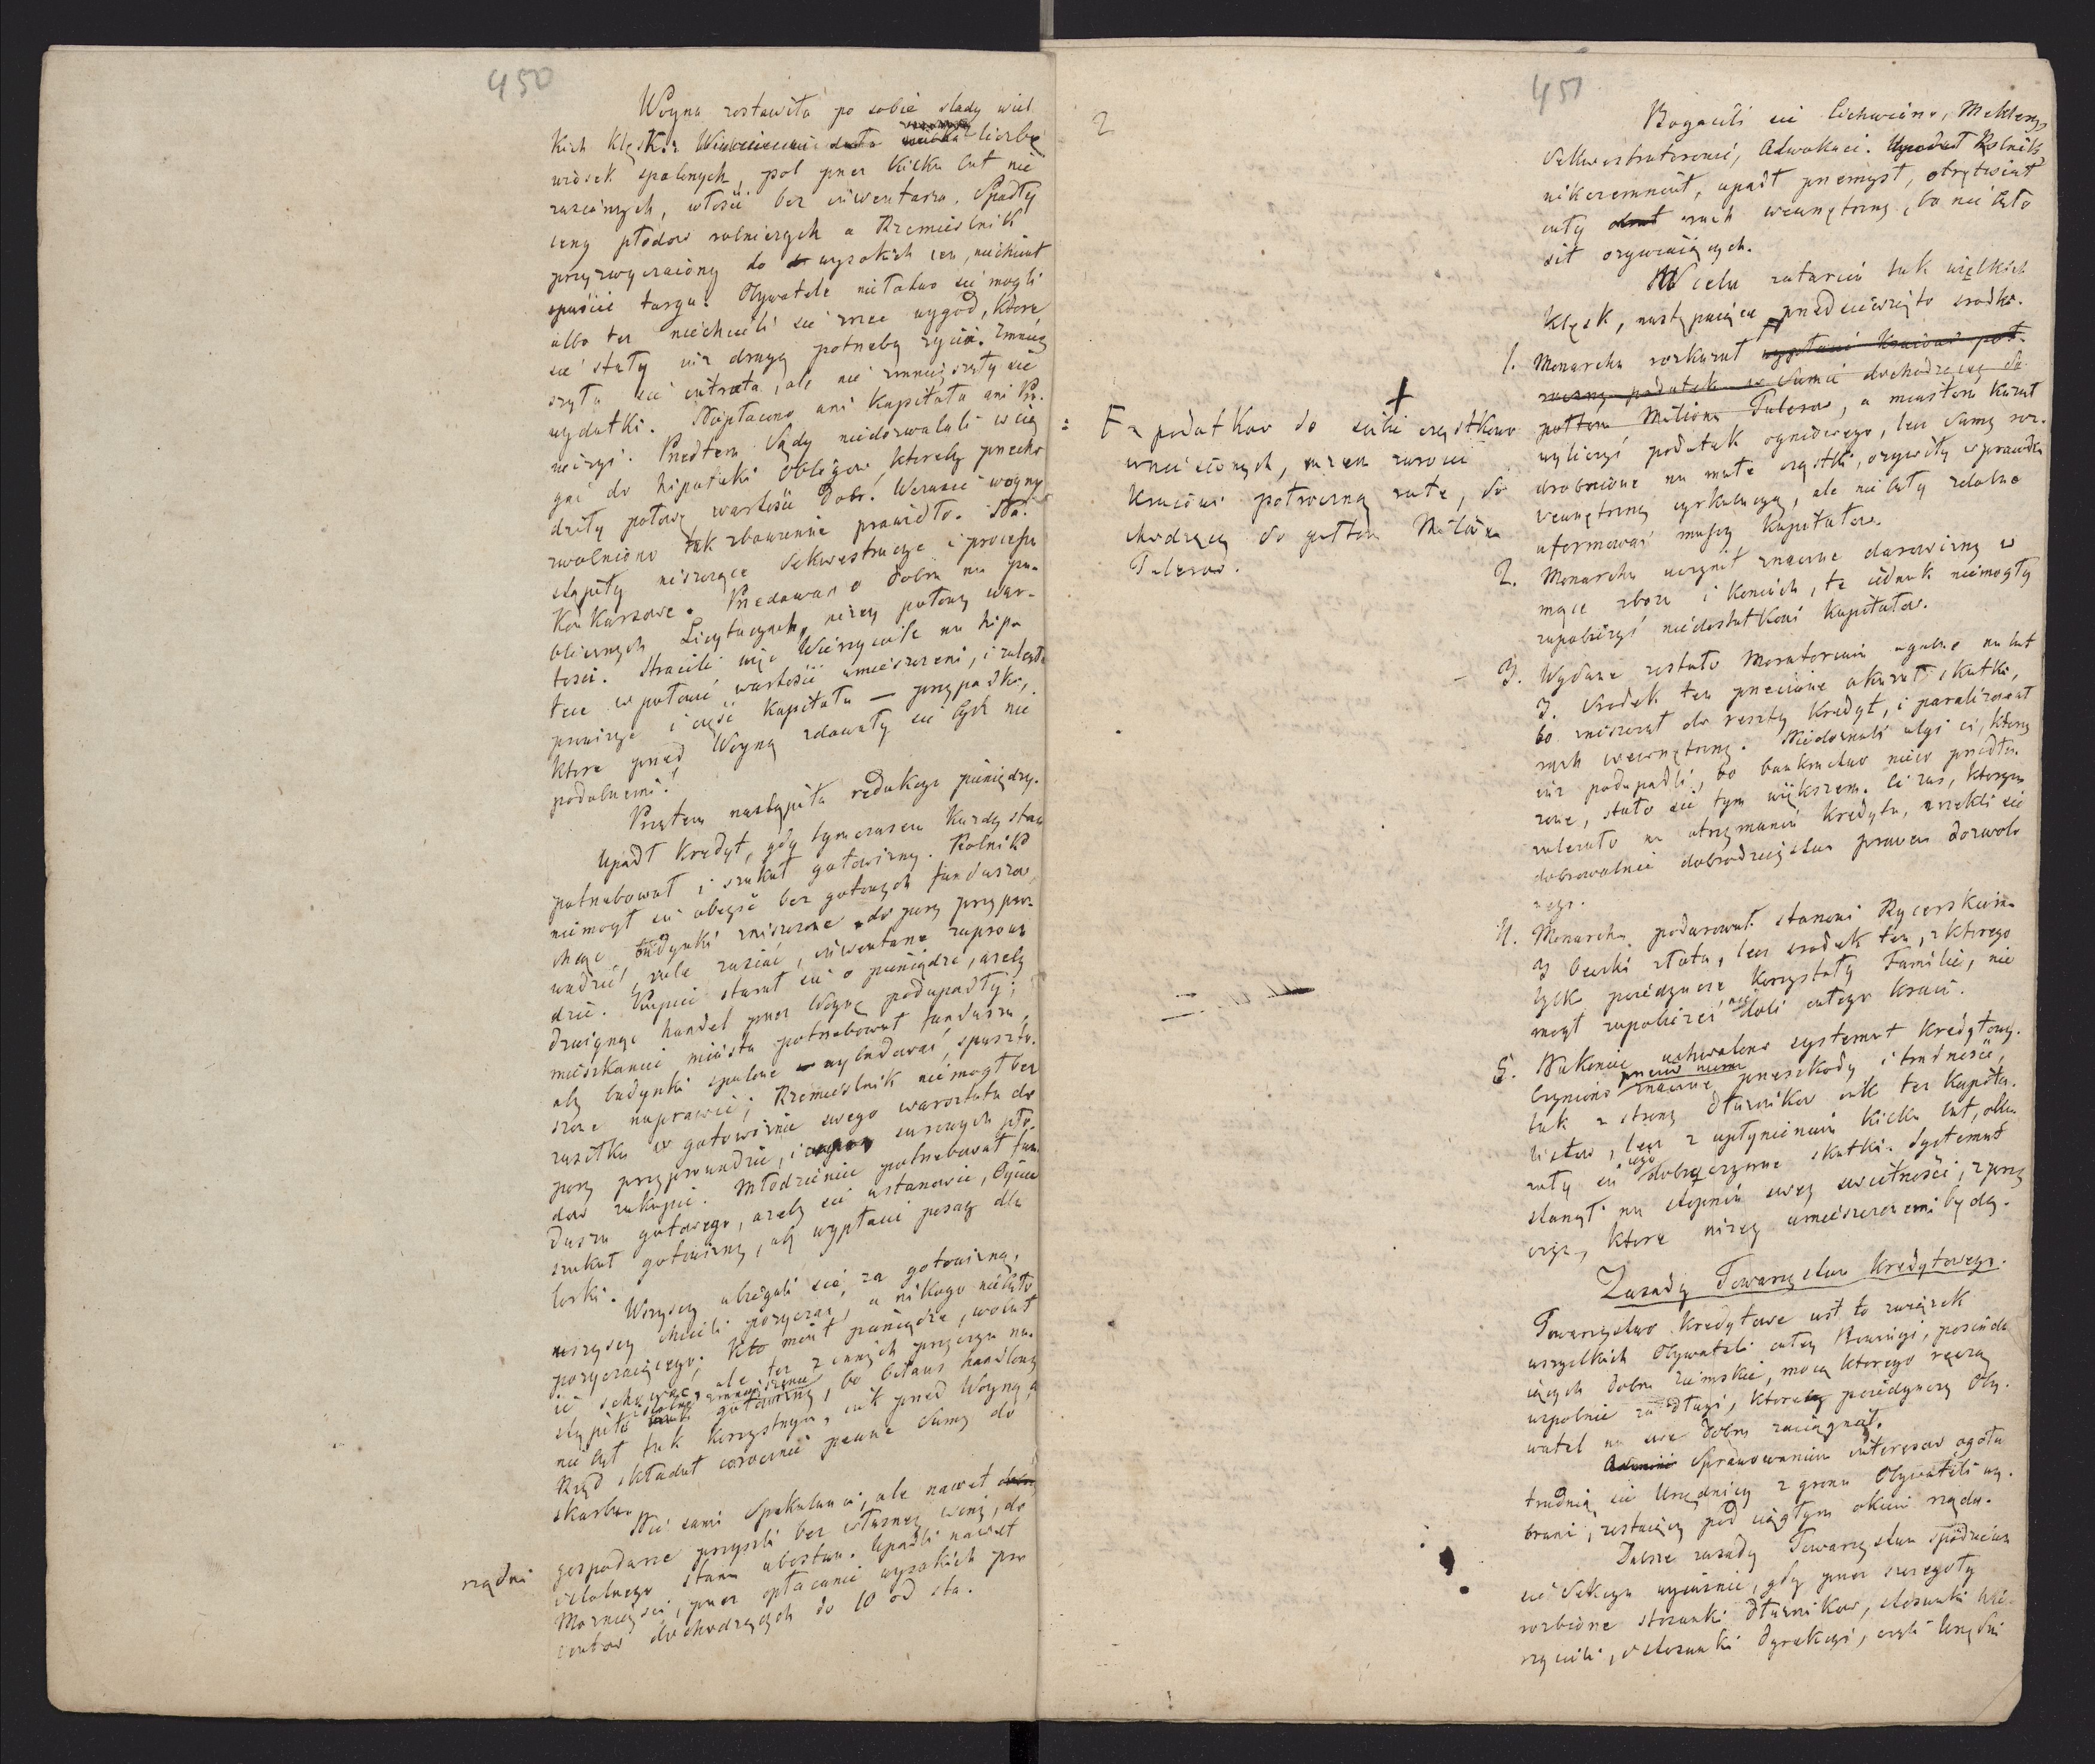 450
Woyna zostawiła po sobie slady wiel
kich klęsk. liczbę
wiosek spalonych, pol przez kilka lat nie
zasianych, włosci bez inwentarza. Spadły
ceny płodow rolniczych a Rzemieslnik
przyzwyczaiony do wysokich cen, niechciał
spuścić targu. Obywatele niełatwo się mogli
albo też niechcieli się zrzec wygod, które
się stały iuż drugą potrzebą życia. Zmniey
szyła się intrata, ale nie zmnieyszyły się
wydatki. Niepłacono ani Kapitału ani Pro
wizyi. Przedtem Sądy niedozwalali wcią
gać do hipoteki obligow, ktoreby przecho
dziły połowę wartości Dobr. Wczasie woyny
zwolniono tak zbawienne prawidło. Na
stąpiły niszczące Sekwestracye i processa
Konkursowe. Przedawano dobra na pu
blicznych Licytacyach, niżey połowy war
tosci. Stracili więc Wierzyciele na hipo
tece w połowie wartości umieszczeni, i zaległe
prowizye i część Kapitału — przypadki,
ktore przed Woyną zdawały się być nie
podobnemi!
Przytem nastąpiła redukcya pieniędzy.
Upadł kredyt, gdy tymczasem każdy stan
potrzebował i szukał gotowizny. Rolnik
niemogł się obeyść bez gotowych funduszow
chcąc budynki zniszczone do pory przypro
wadzić, role zasiać, inwentarze zaprowa
dzić. Kupiec starał się o pieniądze, azeby
dzwignąć handel przez Woynę podupadły;
mieszkaniec miasta potrzebował funduszu,
aby budynki spalone wybudować, spusto
szone naprawić; Rzemieslnik niemogł bez
zasiłku w gotowiznie swego warsztatu do
pory przyprowadzić, i surowych pło
dow zakupić. Młodzieniec potrzebował fun
duszu gotowego, azeby się ustanowić, Ojciec
szukał gotowizny, aby wypłacić posag dla
corki.
Wszyscy ubiegali się za gotowizną,
wszyscy chcieli pożyczać, a nikogo niebyło
pożyczaiącego; Kto miał pieniądze, wolał
ie schować, ale też z innych przyczyn na
stąpiło istotne zmnieyszenie gotowizny, bo bilans handlowy
nie był tak korzystnym, iak przed Woyną, a
Rząd składał corocznie pewne Sumy do
skarbu.
Nie sami Spekulanci, ale nawet
rządni gospodarze przyszli bez własney winy, do
istotnego stanu ubostwa. Upadli nawet
Możnieysi, przez opłacanie wysokich pro
centow dochodzących do 10 od sta.
2
451
Bogacili się Lichwiarze, Meklerzy
Sekwestratorowie, Adwokaci. Rolnik
nikczemniał, upadł przemysł, otrętwiał
cały ruch wewnętrzny, bo nie było
sił ożywiaiących.
W celu zatarcia tak wielkich
klęsk, następuiące przedsięwzięto srodki.
1. Monarcha rozkazał wypłacić Kraiowi poł-
roczny podatek w Sumie dochodzącey do
połtora Miliona Talerow, a miastom kazał
wyliczyć podatek ogniowego, lecz Sumy roz-
drobnione na małe cząstki, ożywiły wprawdzie
wewnętrzną cyrkulacyą, ale nie były zdolne
uformować massy Kapitałow.
+
: F z podatkow do
wniesionych,
Kraiowi połroczną ratę, do
chodzącą do połtora Miliona
Talerow.
2. Monarcha uczynił znaczne darowizny w
mące zbożu i koniach, te iednak niemogły
zapobiedz niedostatkowi Kapitałow.
3. Wydane zostało Moratorium ogolne na lat
3. Srodek ten przeciwne okazał skutki,
bo zniszczył do reszty Kredyt, i paraliżował
ruch wewnętrzny. Niedoznali ulgi ci, ktorzy
iuż podupadli, bo bankructwo nieco przedłu-
żone, stało się tym większem. Ci zas, ktorym
zależało na utrzymaniu kredytu, zrzekli się
dobrowolnie dobrodzieystwa prawem dozwolo
nego.
4. Monarcha podarował stanowi Rycerskiemu
3 beczki złota, lecz srodek ten, z ktorego
tylko poiedyncze korzystały Familie, nie
mogł zapobiedz niedoli całego kraiu.
5. Nakoniec uchwalono systemat kredytowy.
Czyniono przeciw niemu znaczne przeszkody i trudności,
tak z strony Dłużnikow iak też Kapita-
listow, lecz z upłynieniem kilku lat, oka
zały się iego dobroczynne skutki. Systemat
stanął na stopniu swey swietności, z przy
czyn, ktore niżey umieszczonemi będą.
Zasady Towarzystwa Kredytowego.
Towarzystwo Kredytowe iest to związek
wszystkich Obywateli całey Prowincyi, posiada
iących dobra ziemskie, mocą ktorego ręczą
wspolnie za długi, ktoreby poiedynczy Oby-
watel na swe Dobra zaciągnął.
Sprawowaniem interesow ogołu
trudnią się Urzędnicy z grona Obywateli wy-
brani, zostaiący pod ciągłym okiem rządu.
Dalsze zasady Towarzystwa
wyiasnić, gdy przez szczegoły
rozbione stosunki dłużnikow, stosunki Wie-
rzycieli, i stosunki dyrekcyi, czyli Urzędni